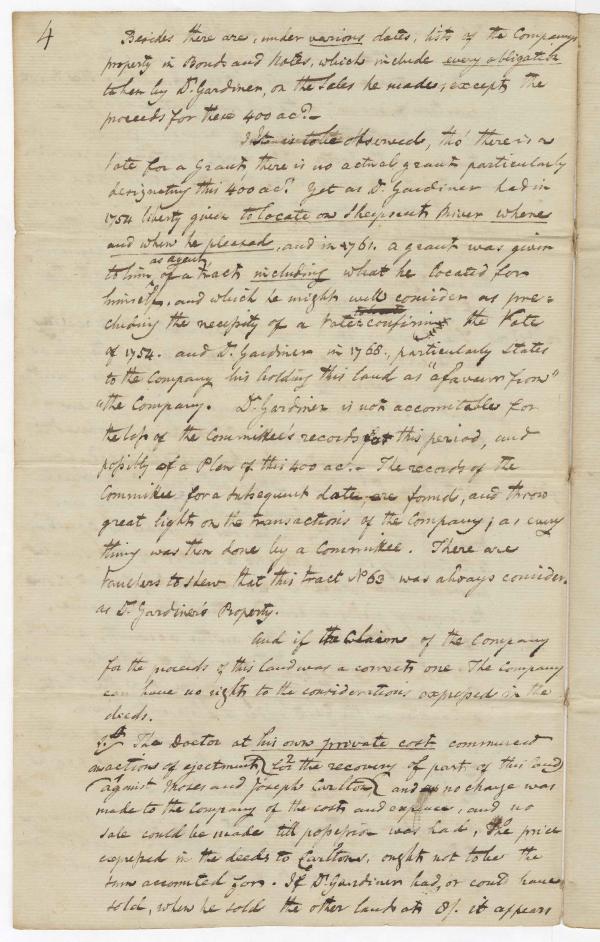 4
Besides there are, under various dates, lists of the Companys
property in Bonds and Notes, which include every obligation
taken by Dr. Gardiner, on the Sales he made, except the
proceeds for these 400 acs.
It is to be observed, tho' there is a
Vote for a Grant, there is no actual grant particularly
designating this 400 acs. Yet as Dr. Gardiner had in
1754 liberty given to locate on Sheepscut River where
and when he pleased, and in 1761. a grant was given
as agent
to him, of a tract including what he located for
himself, and which he might well consider as pre=
cluding the necessity of a Vote confirming the Vote
of 1754. and Dr. Gardiner in 1768, particularly States
to the Company his holding this land as "a favour from"
"the Company. Dr. Gardiner is not accountable for
the loss of the Committee's records for this period, and
possibly of a Plan of this 400 ac.- The records of the
Committee for a subsequent date, are found, and throw
great lights on the transactions of the Company; as every
thing was then done by a Committee. There are
Vouchers to shew that this tract No 63 was always consider-
as Dr. Gardiner's Property.
And if the Claim of the Company
for the proceeds of this land was a correct one The Company
can have no right to the considerations expressed in the
deeds.
The Doctor at his own private cost commenced
actions of ejectment for the recovery of part of this land
against Moses and Joseph Carlton and no charge was
made to the Company of the costs and expence, and no
sale could be made till possession was had, The price
expressed in the deeds to Carltons, ought not to be the
sum accounted for. If Dr. Gardiner had, or could have
sold, when he sold the other lands at 8/. it appears